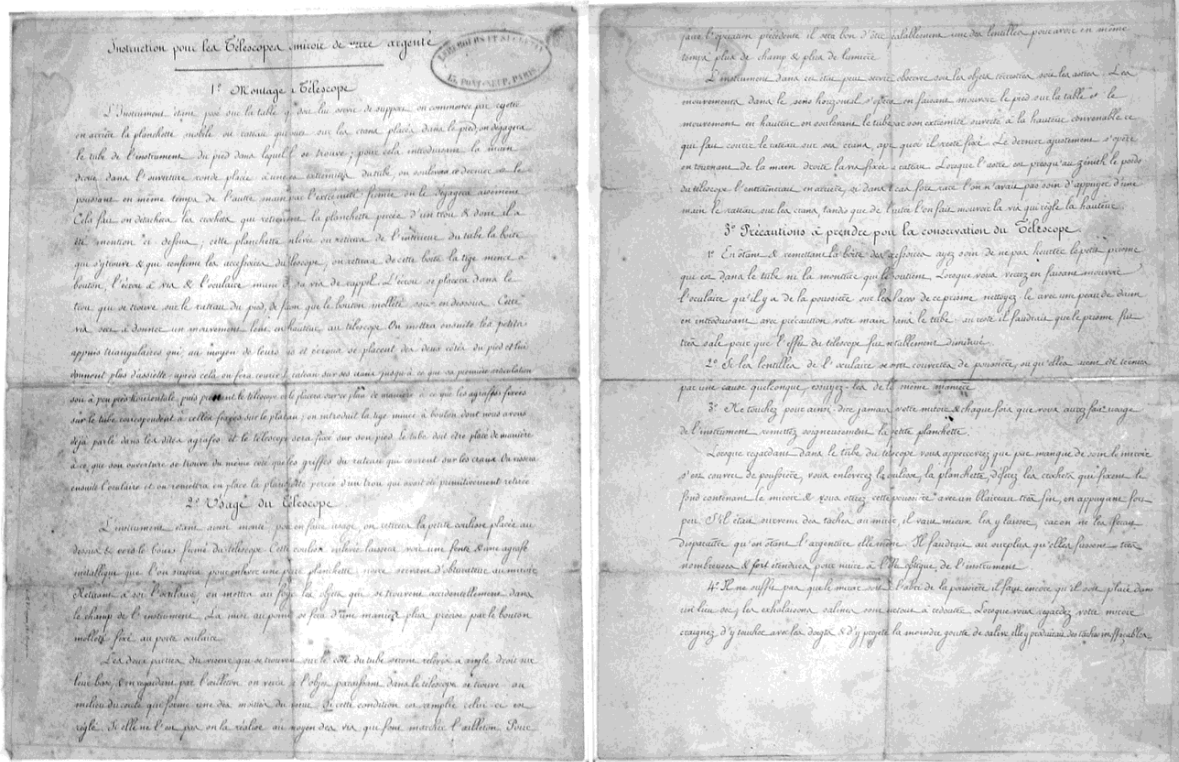 Instruction pour les Télescopes miroir de verre argenté
1° Montage Télescope
L'Instrument étant posé sur la table q doit lui servir de support on commence par rejeter
en arrière la planchette mobile ou rateau qui sur les crans placés dans le pied, on dégagera
le tube de l'instrument du pied dans lequel il se trouve; pour cela introduisant la main
droite dans l'ouverture ronde placée à l'une extrémités du tube, on soulevera ce dernier et le
poussant en même temps de l'autre main par l'extrémité fermée on le dégagera aisément
Cela fait on détachera les crochets qui retiennent la planchette percée d'un trou & dont il a
été mention ci dessus; cette planchette enlevée on retirera de l'intérieur du tube la boîte
qui s'y trouve & qui renferme les accessoires du télescope, on retirera de cette boîte la tige mince à
bouton, l'écrou à vis & l'oculaire muni sa vis de rappel. L'écrou se placera dans le
trou qui se trouve sur le rateau du pied, de façon que le bouton molleté soit en dessous. Cette
vis sert à donner un mouvement lent en hauteur au télescope. On mettra ensuite les petits
appuis triangulaires qui au moyen de leurs vis et écrous se placent des deux côtés du pied et lui
donnent plus d'assiette, après cela on fera courir le rateau sur ses crans jusqu'à ce que sa première articulation
soit à peu près horizontale, puis prenant le télescope on le placera sur ce plan de manière à ce que les agrafes fixées
sur le tube correspondent à celles fixées sur le plateau; on introduit la tige mince à bouton dont nous avons
déjà parlé dans les dites agrafes, et le télescope sera fixé sur son pied. le tube doit être placé de manière
à ce que son ouverture se trouve du même côté que les griffes du rateau qui courent sur les crans. On vissera
ensuite l'oculaire et on remettra en place la planchette percée d'un trou qui avait été primitivement retirée
2° Usage du Télescope
L'instrument étant ainsi monté pour en faire usage, on retirera la petite coulisse placée au
dessus & vers le bout fermé du télescope. Cette coulisse enlevée laissera voir une fente & une agrafe
métallique que l'on saisira pour enlever une petite planchette noire servant d'obturateur au miroir
Retirant l'oculaire, on mettra au foyer les objets qui se trouvent accidentellement dans
le champ de l'instrument. La mise au point se fera d'une manière plus précise par le bouton
molleté fixé au porte oculaire
Les deux parties du viseur qui se trouvent sur le côté du tube seront relevées à angle droit sur
leur base, & en regardant par l'œilleton on verra si l'objet paraissant dans le télescope se trouve au
milieu du cercle que forme une des moitiés du viseur. Si cette condition est remplie celui ci est
réglé. Si elle ne l'est pas on la réalise au moyen des vis qui font marcher l'œilleton. Pour
faire l'opération précédente il sera bon d'ôter une des lentilles pour avoir en même
temps plus de champ & plus de lumière
L'instrument dans cet état peut servir observer soit les objets terrestres soit les astres. Les
mouvements dans le sens horizontal s'opère en faisant mouvoir le pied sur la table et le
mouvement en hauteur en soulevant le tube par son extrémité ouverte à la hauteur convenable ce
qui fait courir le rateau sur ses crans, après quoi il reste fixé. Le dernier ajustement s'opère
en tournant de la main droite la vis fixée au rateau. Lorsque l'astre est presqu'au zénith le poids
du télescope l'entraînerait en arrière, si dans ce cas fort rare l'on n'avait pas soin d'appuyer d'une
main le rateau sur les crans, tandis que de l'autre l'on fait mouvoir la vis qui règle la hauteur.
3° Précautions à prendre pour la conservation du Télescope.
1° En ôtant & remettant la boîte des accessoires ayez soin de ne pas heurter le petit prisme
qui est dans le tube ni la monture qui le soutient. Lorsque vous verrez en faisant mouvoir
l'oculaire qu'il y a de la poussière sur les faces de ce prisme nettoyez le avec une peau de daim
en introduisant avec précaution votre main dans le tube au reste il faudrait que le prisme fut
très sale pour que l'effet du télescope fut notablement diminué.
2° Si les lentilles de l'oculaire sont couvertes de poussière, ou qu'elles aient été ternies
par une cause quelconque, essuyez-les de la même manière
3° Ne touchez pour ainsi dire jamais votre miroir & chaque fois que vous aurez fait usage
de l'instrument remettez soigneusement la petite planchette.
Lorsque regardant dans le tube du télescope vous apercevrez que par manque de soin le miroir
s'est couvert de poussière, vous enleverez la coulisse, la planchette, ôterez les crochets qui fixent le
fond contenant le miroir & vous ôterez cette poussière avec un blaireau très fin, en appuyant fort
peu. S'il était survenu des taches au miroir, il vaut mieux les y laisser, car on ne les ferait
disparaître qu'en ôtant l'argenture elle même. Il faudrait au surplus qu'elles fussent très
nombreuses & fort étendues pour nuire à l'effet optique de l'instrument.
4° Il ne suffit pas que le miroir soit à l'abri de la poussière il faut encore qu'il soit placé dans
un lieu sec, les exhalaisons salines sont surtout à redouter. Lorsque vous regardez votre miroir
craignez d'y toucher avec les doigts & d'y projeter la moindre goutte de salive elle y produirait des taches ineffaçables.